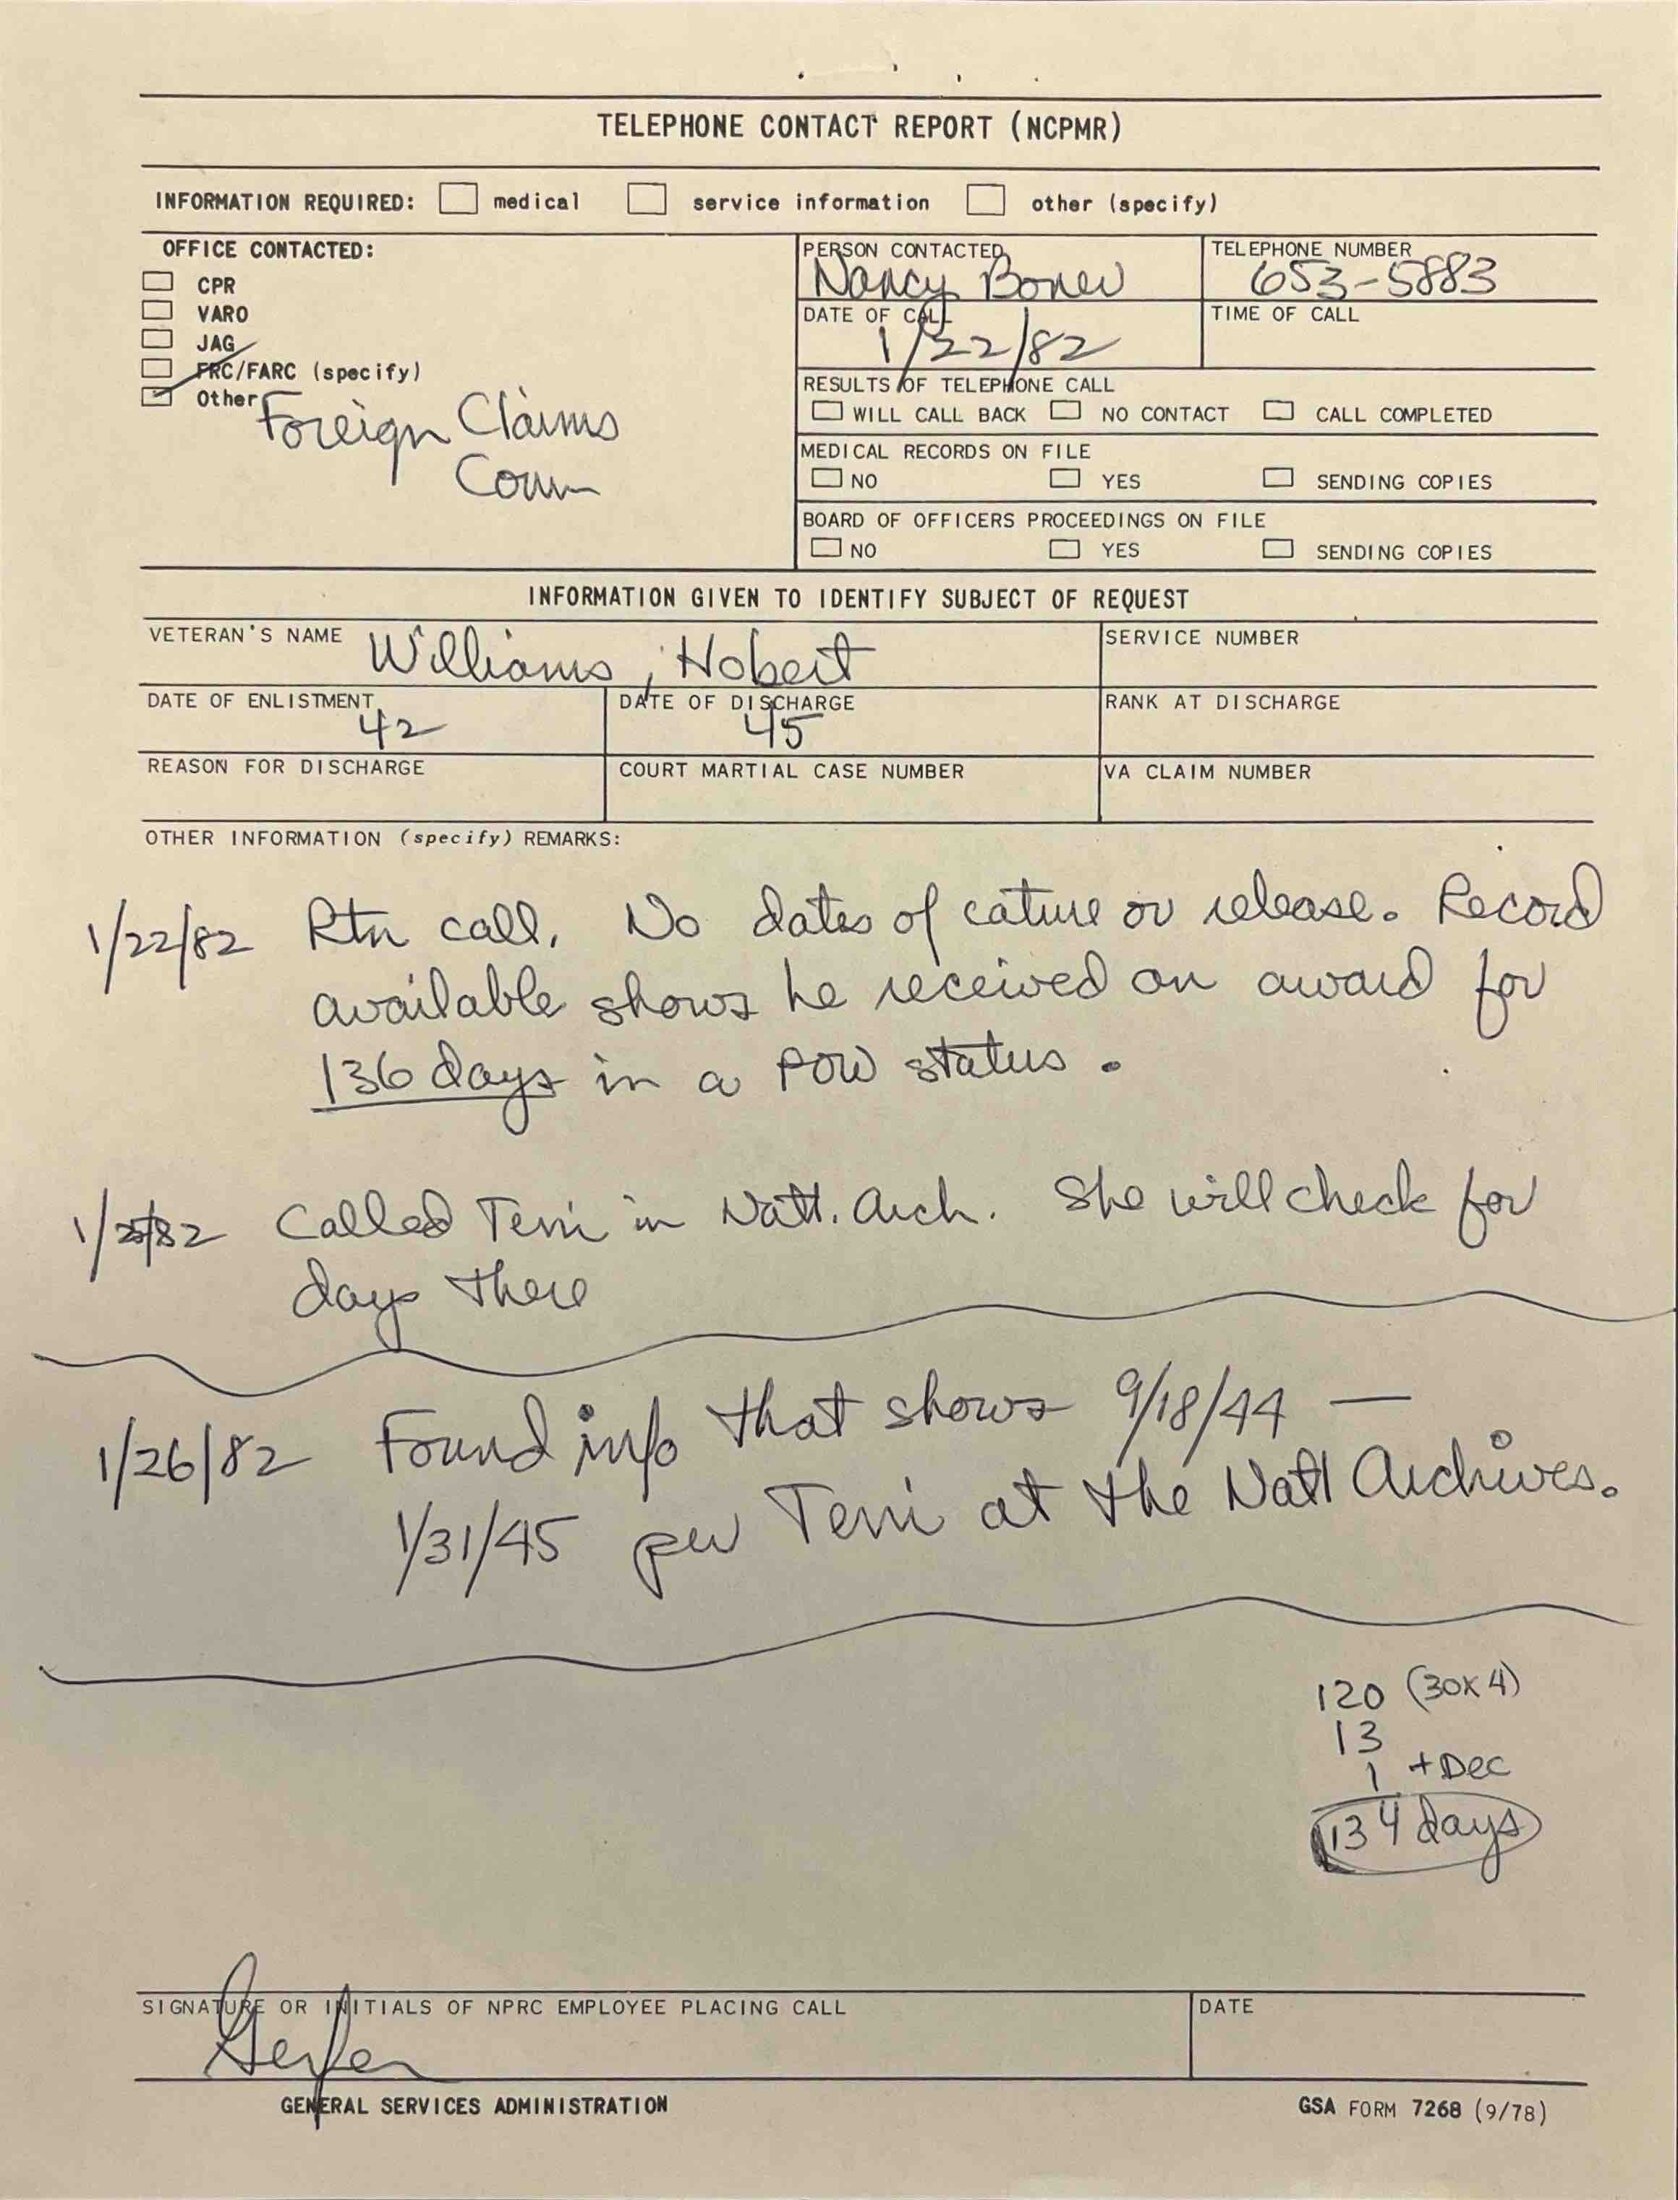 TELEPHONE CONTACT REPORT (NCPMR)
INFORMATION REQUIRED: medical service information other (specify)
OFFICE CONTACTED:
CPR
VARO
JAG
FRC/FARC (specify)
Other
Foreign Claims
Comm
PERSON CONTACTED
Nancy Boner
TELEPHONE NUMBER
653-5883
DATE OF CALL
1/22/82
TIME OF CALL
RESULTS OF TELEPHONE CALL
WILL CALL BACK NO CONTACT CALL COMPLETED
MEDICAL RECORDS ON FILE
NO YES SENDING COPIES
BOARD OF OFFICERS PROCEEDINGS ON FILE
NO YES SENDING COPIES
INFORMATION GIVEN TO IDENTIFY SUBJECT OF REQUEST
VETERAN'S NAME Williams, Hobert
SERVICE NUMBER
DATE OF ENLISTMENT
42
DATE OF DISCHARGE
45
RANK AT DISCHARGE
REASON FOR DISCHARGE
COURT MARTIAL CASE NUMBER
VA CLAIM NUMBER
OTHER INFORMATION (specify) REMARKS:
1/22/82 Rtn call. No dates of cature or release. Record
available shows he received an award for
136 days in a POW status.
1/25/82 Called Terri in Natl. Arch. She will check for
days there
1/26/82 Found info that shows 9/18/44 —
1/31/45 per Terri at the Natl Archives.
120 (30x4)
13
1 + Dec
134 days
SIGNATURE OR INITIALS OF NPRC EMPLOYEE PLACING CALL
DATE
GENERAL SERVICES ADMINISTRATION
GSA FORM 7268 (9/78)